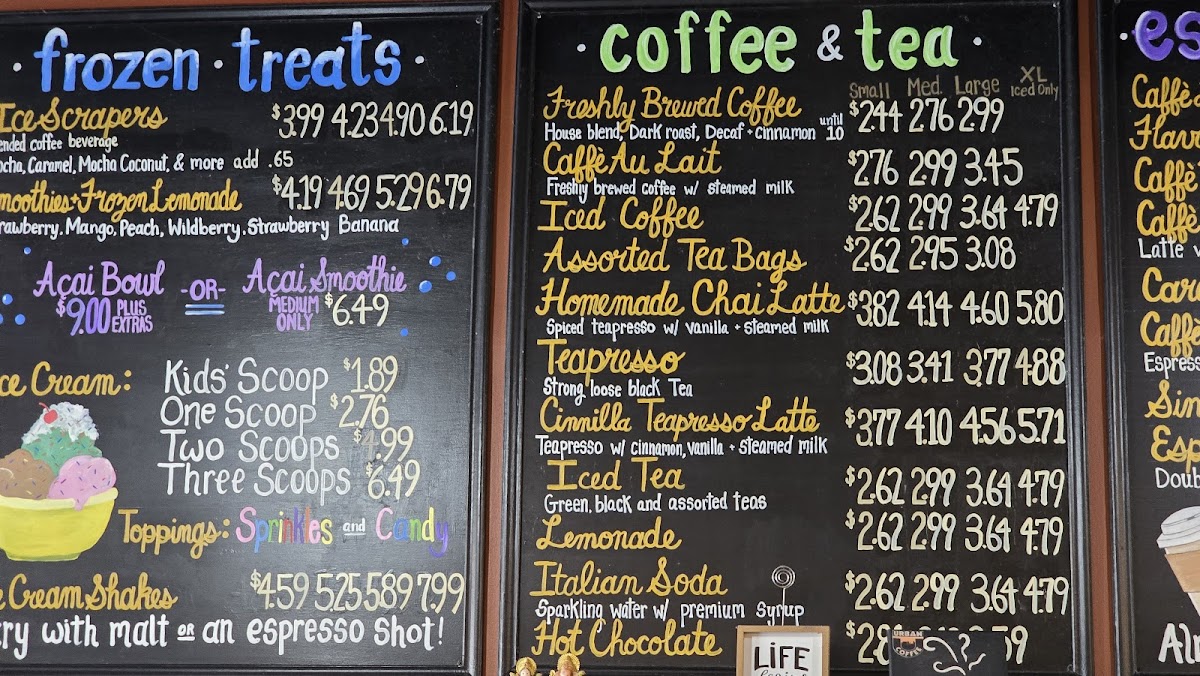 · frozen · treats ·
Ice Scrapers $3.99 4.23 4.90 6.19
ended coffee beverage
ocha, Caramel, Mocha Coconut, & more add .65
moothies + Frozen Lemonade $4.19 4.69 5.29 6.79
rawberry, Mango, Peach, Wildberry, Strawberry Banana
Açai Bowl -OR- Açai Smoothie
$9.00 PLUS EXTRAS MEDIUM ONLY $6.49
ce Cream: Kids' Scoop $1.89
One Scoop $2.76
Two Scoops $4.99
Three Scoops $6.49
Toppings: Sprinkles and Candy
e Cream Shakes $4.59 5.25 5.89 7.99
ry with malt or an espresso shot!
· coffee & tea ·
Small Med. Large XL Iced Only
Freshly Brewed Coffee $2.44 2.76 2.99
House blend, Dark roast, Decaf + cinnamon until 10
Caffè Au Lait $2.76 2.99 3.45
Freshly brewed coffee w/ steamed milk
Iced Coffee $2.62 2.99 3.64 4.79
Assorted Tea Bags $2.62 2.95 3.08
Homemade Chai Latte $3.82 4.14 4.60 5.80
Spiced teapresso w/ vanilla + steamed milk
Teapresso $3.08 3.41 3.77 4.88
Strong loose black Tea
Cinnilla Teapresso Latte $3.77 4.10 4.56 5.71
Teapresso w/ cinnamon, vanilla + steamed milk
Iced Tea $2.62 2.99 3.64 4.79
Green, black and assorted teas
Lemonade $2.62 2.99 3.64 4.79
Italian Soda $2.62 2.99 3.64 4.79
Sparkling water w/ premium syrup
Hot Chocolate
URBAN COFFEE
LiFE
· es
Caffè
Flavo
Caffè
Caffè
Latte
Car
Caffè
Espress
Sin
Esp
Doub
Al